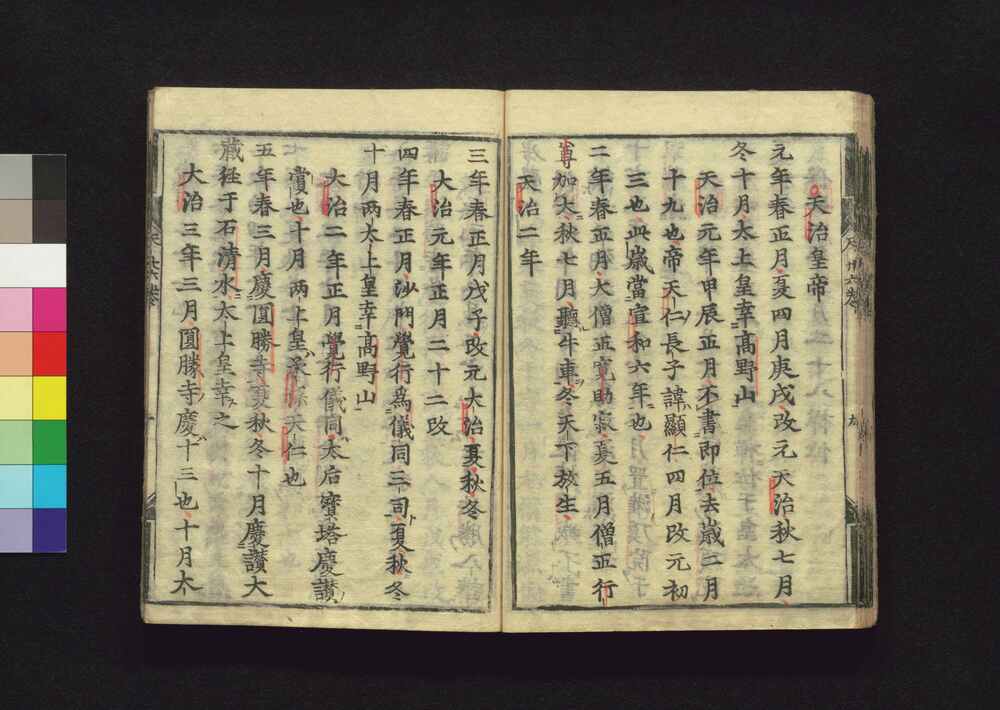 天治皇帝
元年春正月夏四月庚戌改元天治秋七月
冬十月太上皇幸高野山
天治元年甲辰正月不書即位去歳二月
十九也帝天仁長子諱顯仁四月改元初
三也此歳當宣和六年也
二年春正月大僧正寛助寂夏五月僧正行
尊加大秋七月聽牛車冬天下放生
天治二年
三年春正月戊子改元大治夏秋冬
大治元年正月二十二改
四年春正月沙門覺行為儀同三司夏秋冬
十月两太上皇幸高野山
大治二年正月覺行儀同太后寶塔慶讃
賞也十月两上皇承 天仁也
五年春三月慶圓勝寺夏秋冬十月慶讃大
蔵経于石清水太上皇幸之
大治三年三月圓勝寺慶十三也十月太